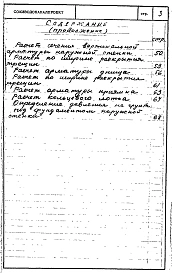 СОЮЗВОДОКАНАЛПРОЕКТ стр. 3
СОДЕРЖАНИЕ
(продолжение)
стр.
Расчет сечения вертикальной
арматуры наружной стенки 50
Расчет по ширине раскрытия
трещин 53
Расчет арматуры днища 56
Расчет по ширине раскрытия
трещин 61
Расчет арматуры приямка 63
Расчет кольцевого лотка 67
Определение давления на грунт
под фундаментом наружной
стенки 68